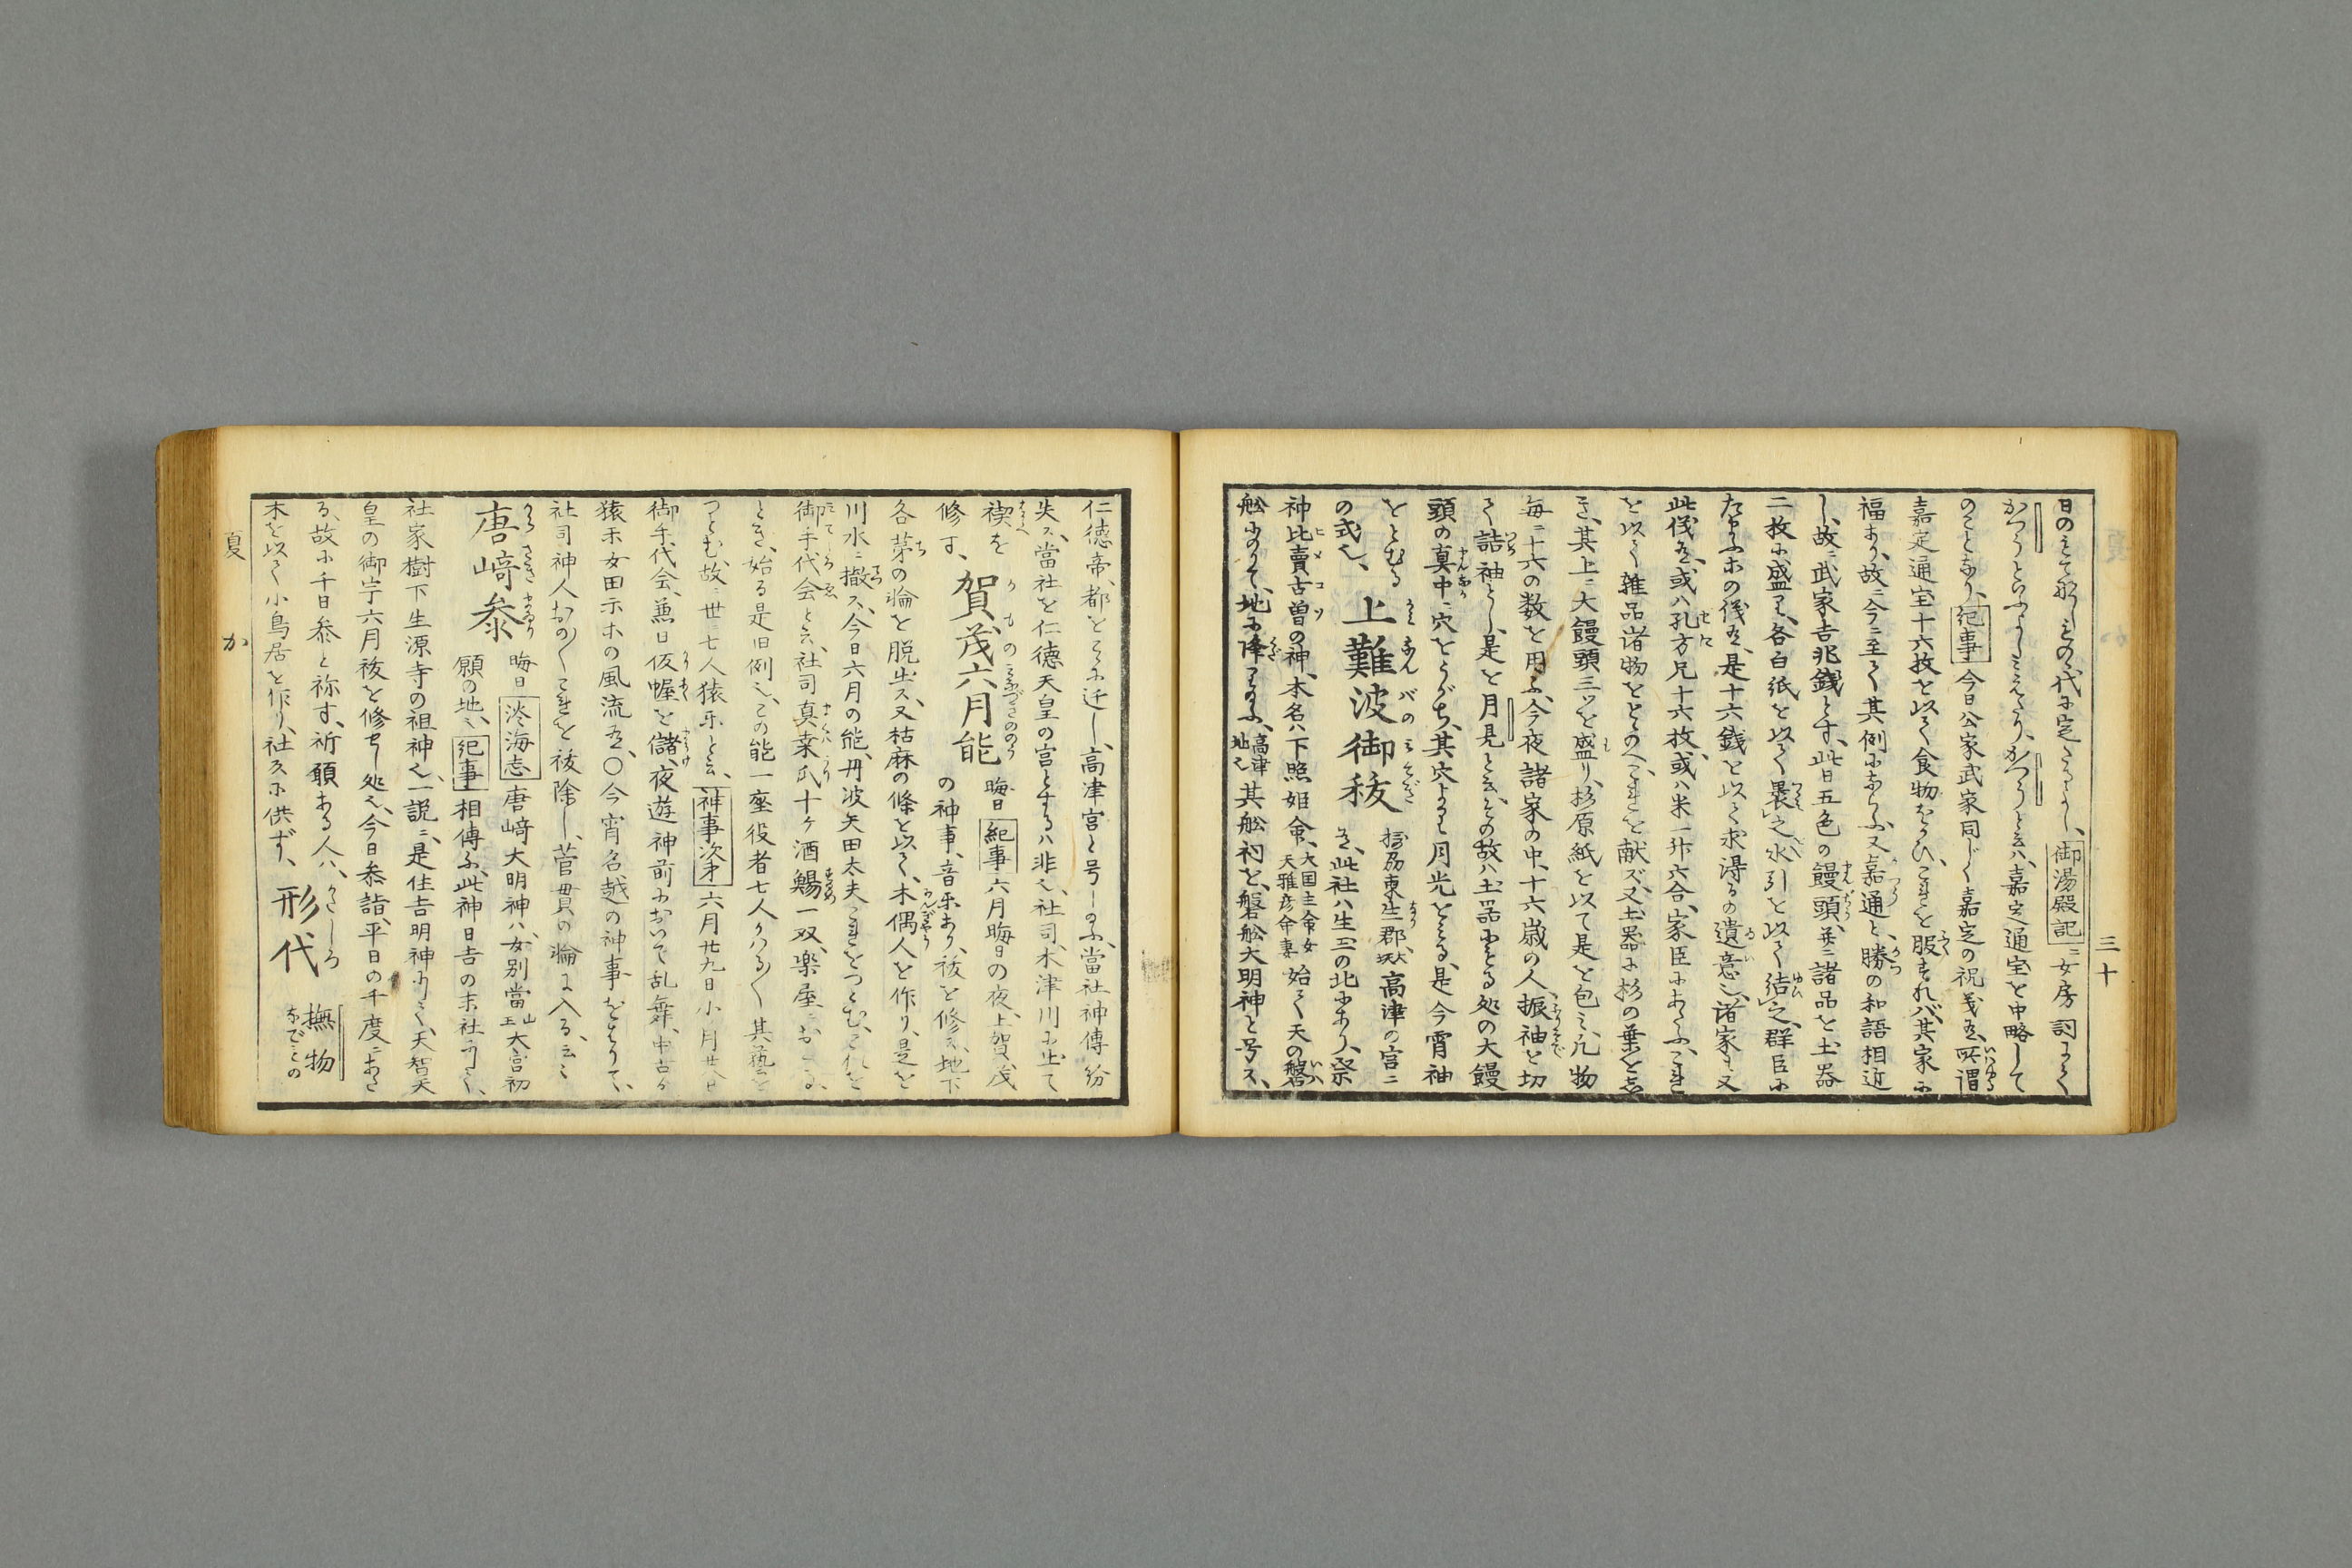 三十
日のミそ船しその代に定さるよし、御湯殿記ニ女房詞にてく
かつうといふよしミえたり、かつうとハ、嘉定通宝を中略して
のことなり、紀事今日公家武家同じく嘉定の祝義也、所謂
嘉定通宝十六枚を以て食物をかひ、これを服すれバ、其家に
福あり、故ニ今ニ至て其例にならふ、又嘉通と、勝の和語相近
し、故ニ武家吉兆銭とす、此日五色の饅頭、並ニ諸品を土器
二枚に盛て、各白紙を以て裹之、水引を以て結之、群臣に
たまふホの儀也、是十六銭を以て求得るの遺意也、諸家も又
此儀也、或ハ孔方兄十六枚、或ハ米一升六合、家臣にあたふ、これ
を以て雑品諸物をとゝのへ、これを献ズ、又土器に杉の葉をし
き、其上ニ大饅頭三ツを盛リ、杉原紙を以て是を包ミ、凡物
毎ニ十六の数を用ふ、今夜諸家の中、十六歳の人、振袖を切
て詰袖とし、是を月見と云、その故ハ、土器にもる処の大饅
頭の真中ニ穴をうがち、其穴より月光をミる、是今宵袖
をとむる
の式也、
上難波御祓
摂刕東生郡大坂高津の宮ニ
在、此社ハ生玉の北にあり、祭
神比賣古曽の神、本名ハ下照姫命、大国主命女天雅彦命妻始て天の磐
舩にのりて、地に降りたまふ、高津地也其舩祠を、磐舩大明神と号ス、
仁德帝、都をこゝに迁し、高津宮と号したまふ、當社神傳紛
失ス、當社を仁德天皇の宮とするハ非也、社司木津川に出て
禊を
修す、
賀茂六月能
晦日紀事六月晦日の夜、上賀茂
の神事、音楽あり、祓を修ス、地下
各茅の輪を脱出ス、又枯麻の條を以て、木偶人を作り、是を
川水ニ撤ス、今日六月の能、丹波矢田太夫これをつとむ、これを
御手代会と云、社司真菜瓜十ヶ酒鯣一双、楽屋ニおくる、
とき、始る是旧例也、この能一座役者七人かハる〱其藝を
つとむ、故ニ世ニ七人猿楽と云、神事次才六月廿九日小月廿八日
御手代会、兼日仮幄を儲、夜遊神前において乱舞、中古ヶ
猿楽女田楽ホの風流也、〇今宵名越の神事をとりて、
社司神人おの〱これを祓除し、菅貫の輪に入る、云々
唐﨑參
晦日淡海志唐﨑大明神ハ、女別當山王大宮初
願の地也、紀事相傳ふ、此神日吉の末社にして、
社家樹下生源寺の祖神也、一説ニ、是住吉明神にして、天智天
皇の御宇六月祓を修せし処也、今日參詣、平日の千度ニあた
る、故に千日參と称す、祈願ある人ハ、
木を以て小鳥居を作り、社头に供ず、
形代
かたしろ
撫物
なでもの
夏
か